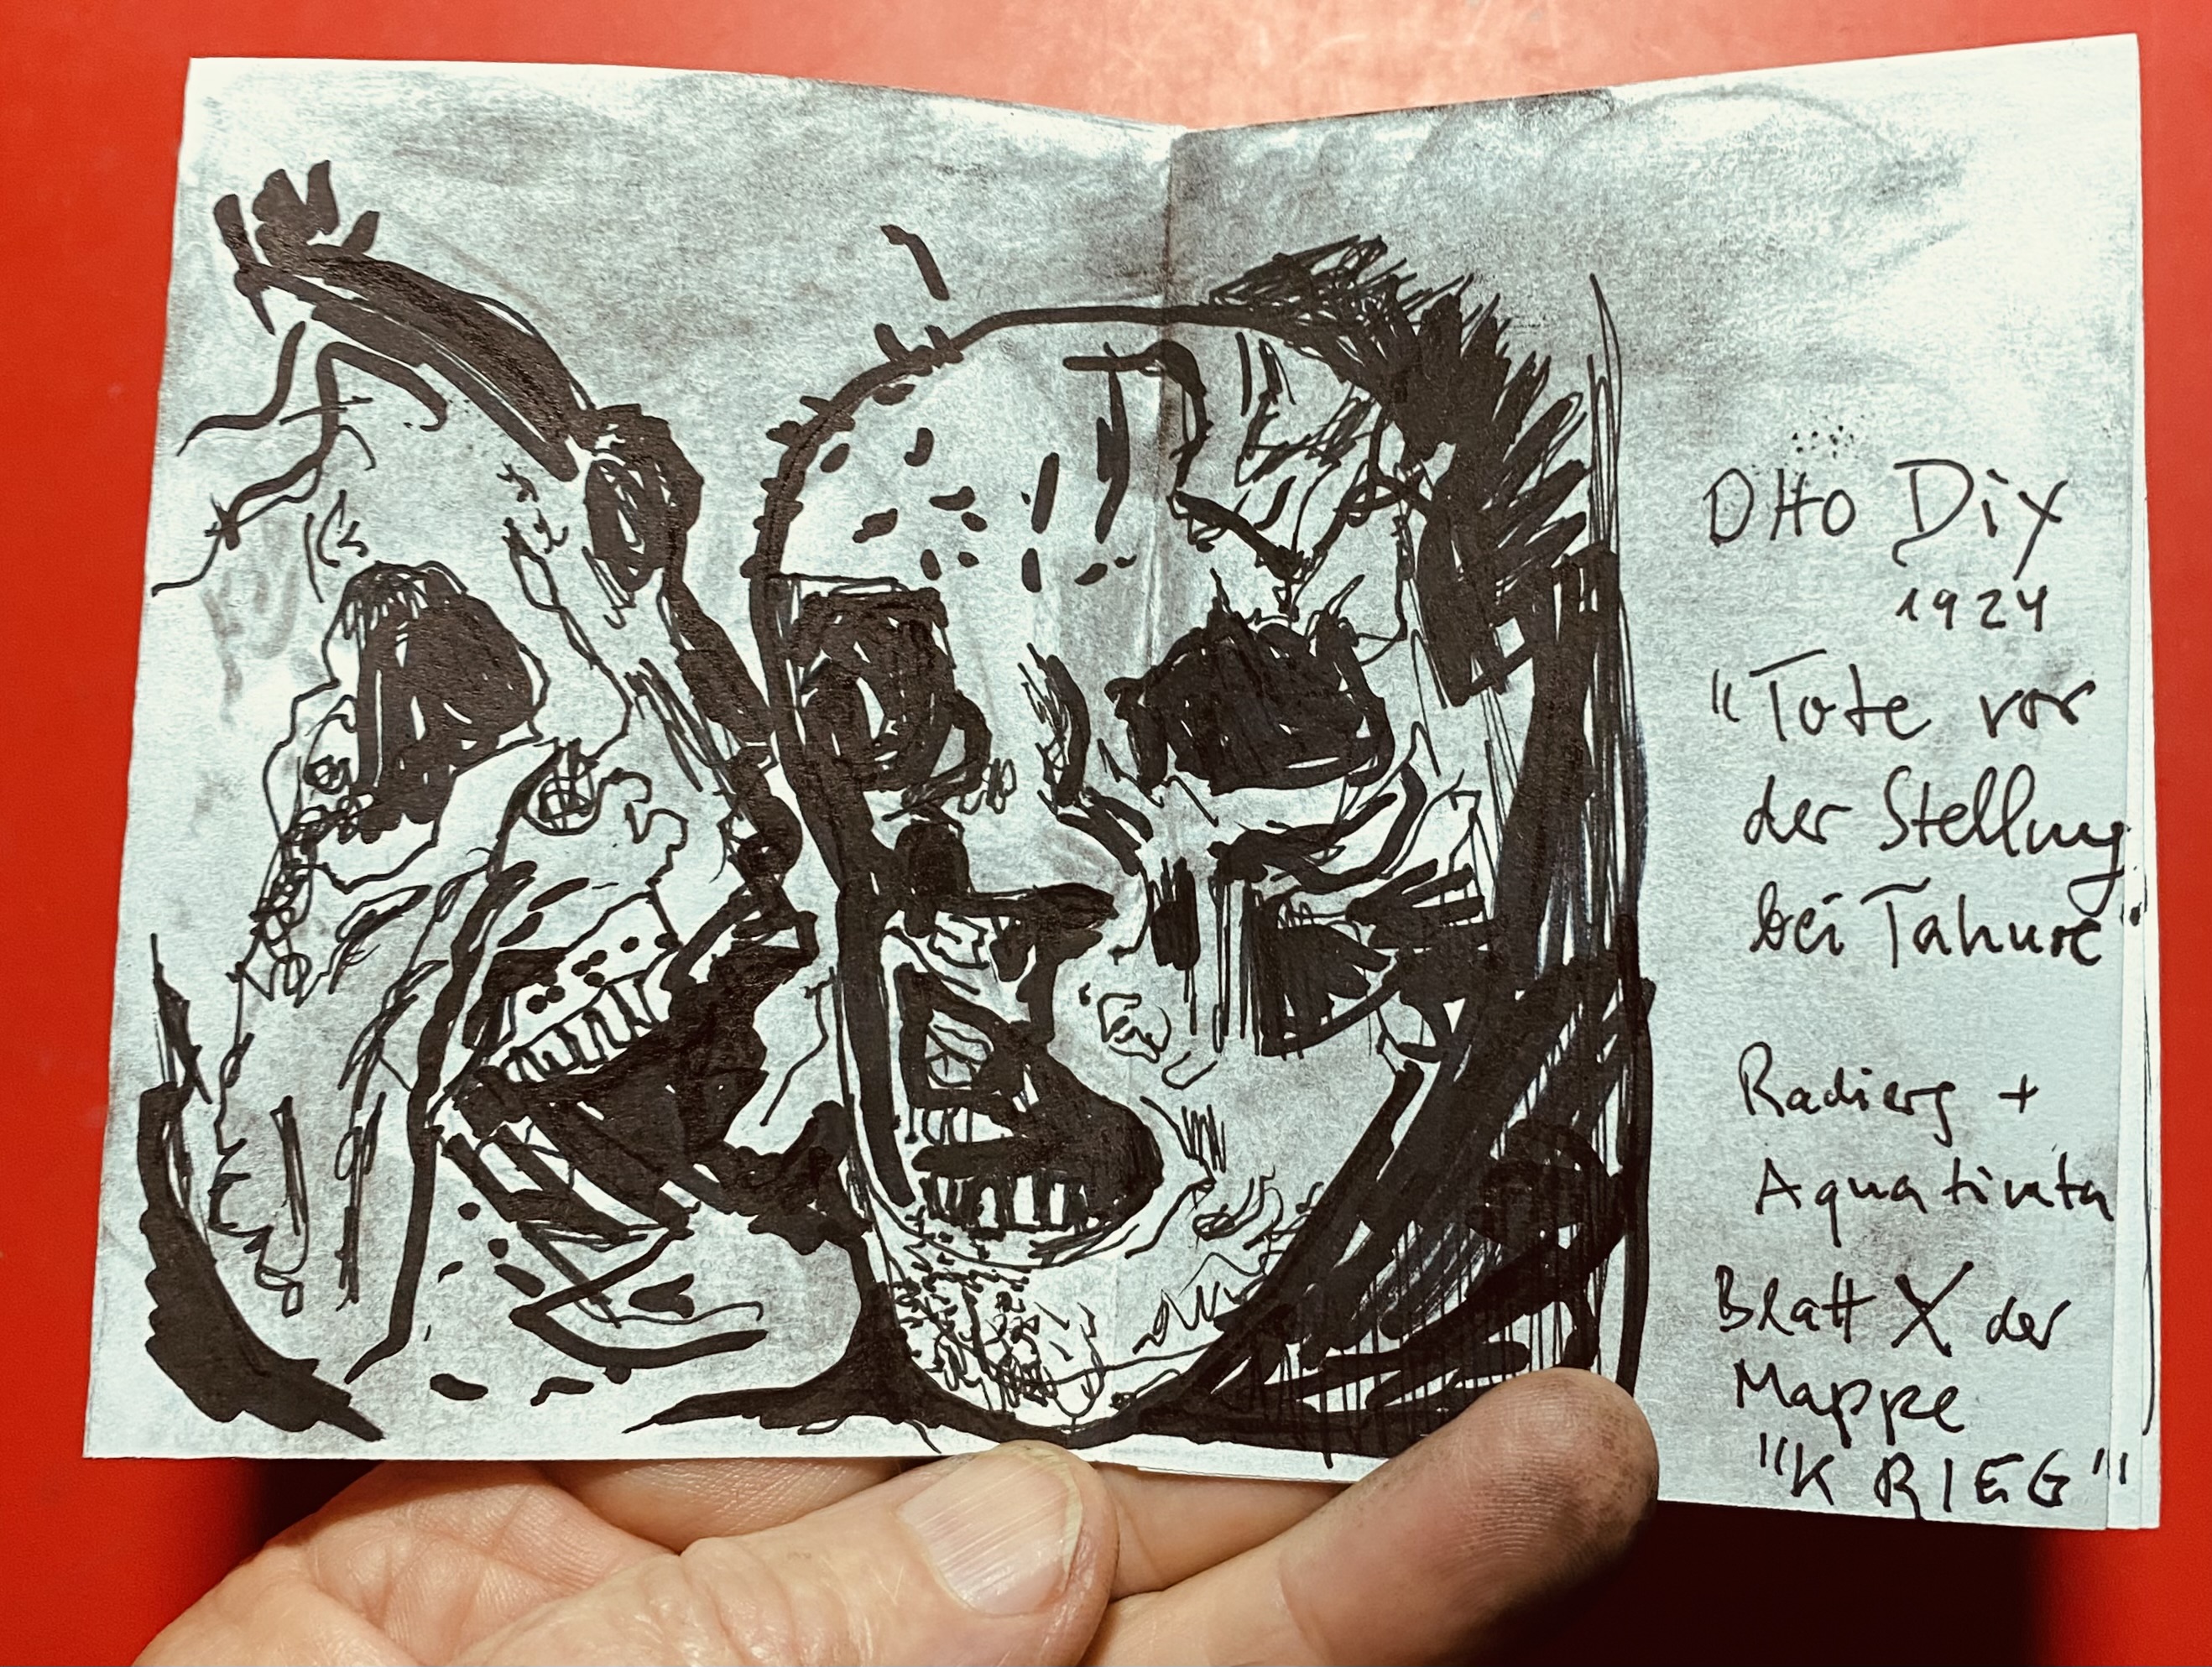 Otto Dix
1924
"Tote vor
der Stellung
bei Tahure"
Radierg +
Aquatinta
Blatt X der
Mappe
"KRIEG"